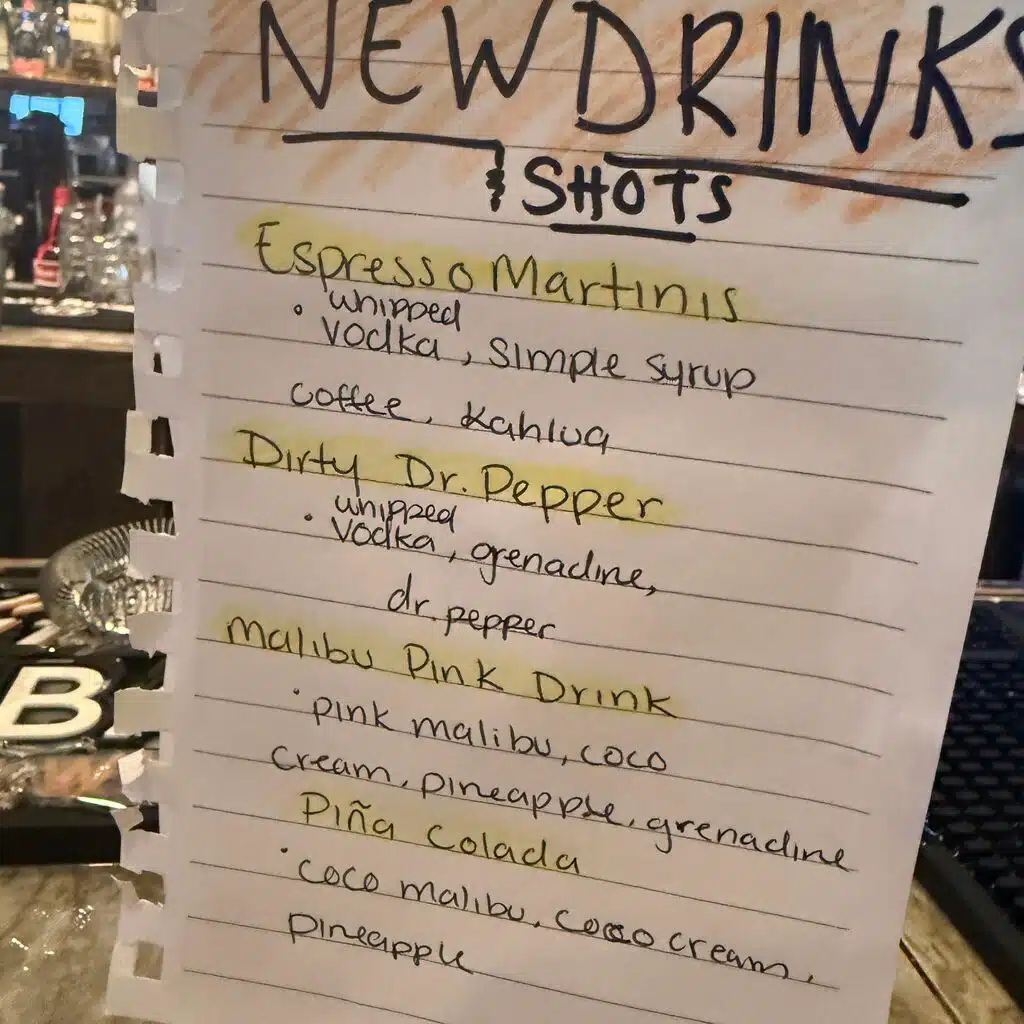 NEW DRINKS
& SHOTS
Espresso Martinis
• whipped
vodka, simple syrup
coffee, Kahlua
Dirty Dr. Pepper
• whipped
vodka, grenadine,
dr. pepper
Malibu Pink Drink
• pink malibu, coco
cream, pineapple, grenadine
Piña Colada
• coco malibu, coco cream,
pineapple
B